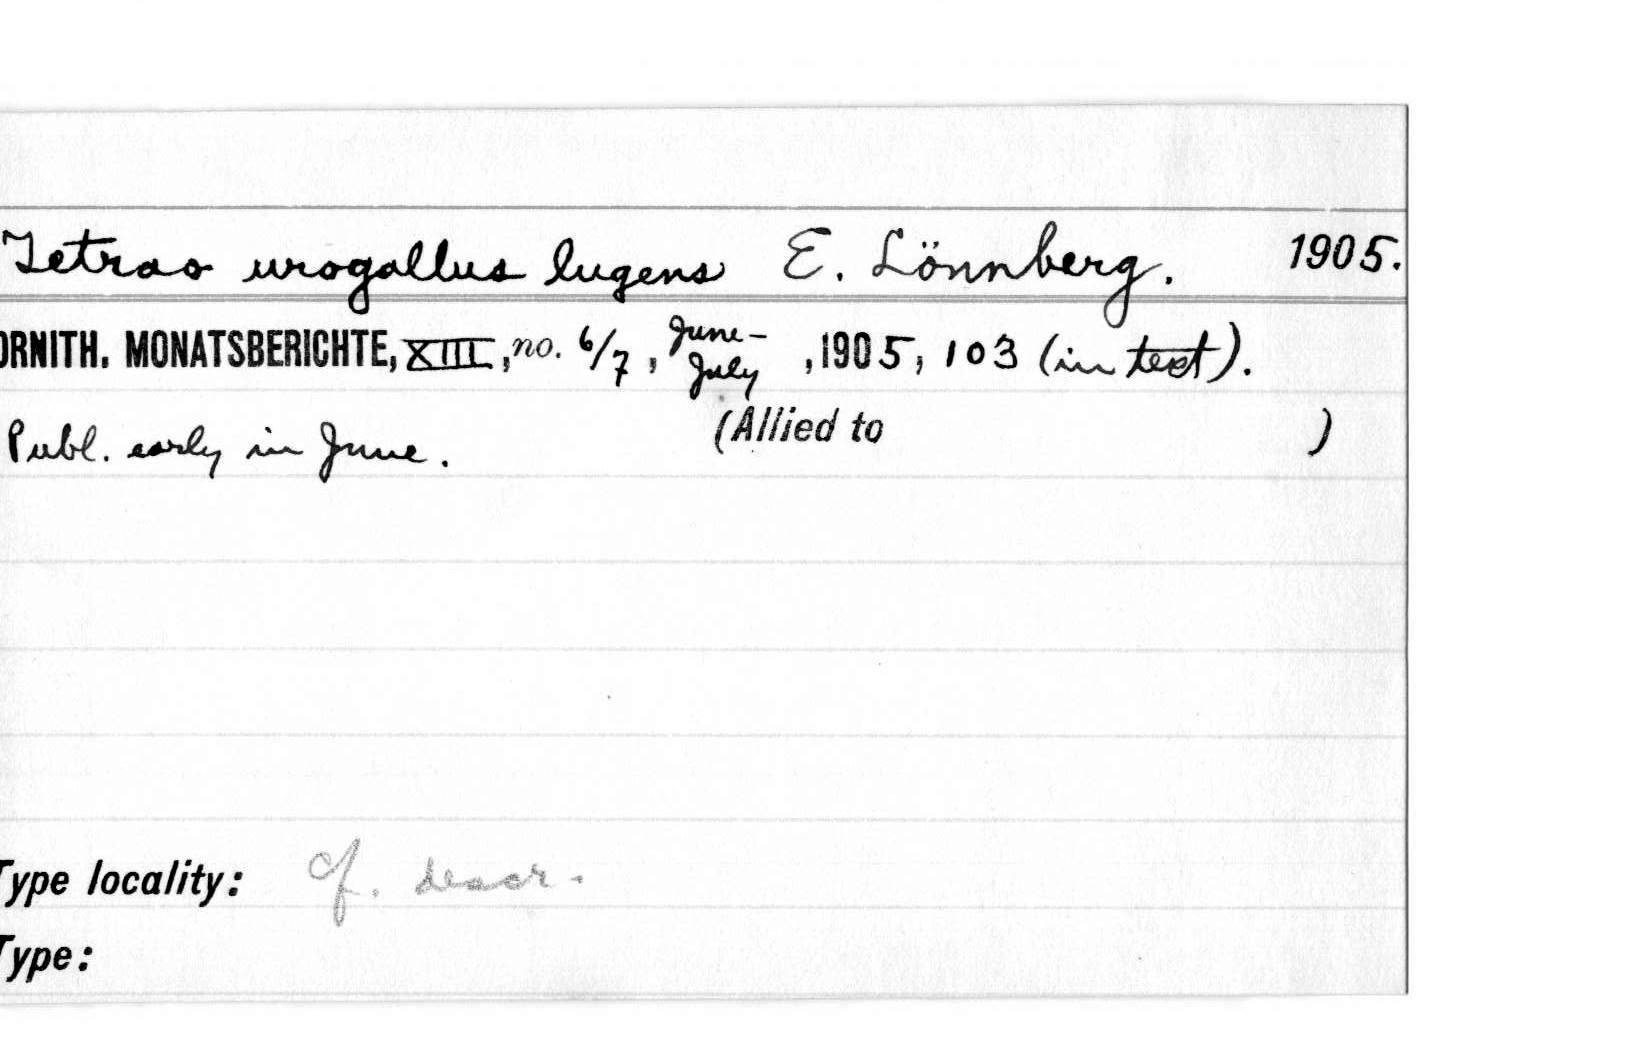 Tetrao urogallus lugens E. Lönnberg. 1905.
ORNITH. MONATSBERICHTE, XIII, no. 6/7, June-July, 1905, 103 (in text).
Publ. early in June. (Allied to )
Type locality: cf. descr.
Type: